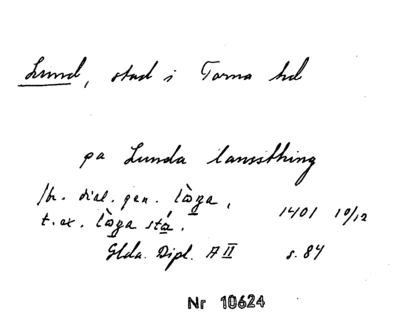 Lund, stad i Torna hd
pa Lunda lanssthing
fbr. dial. gen. lo̤ga,
t. ex. lo̤ga stå.
1401 10/12
Glda. Dipl. A II s. 84
Nr 10624